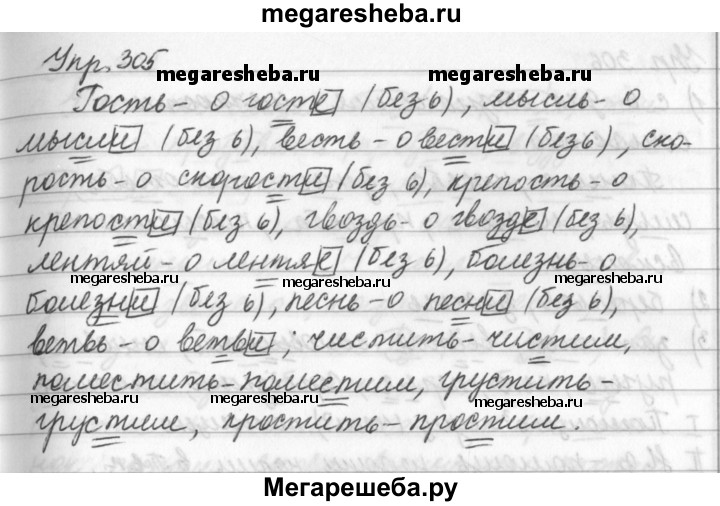 megaresheba.ru
Упр. 305
megaresheba.ru megaresheba.ru
Гость - о госте (без ь), мысль - о
мысли (без ь), весть - о вести (без ь), ско-
рость - о скорости (без ь), крепость - о
крепости (без ь), гвоздь - о гвозде (без ь),
лентяй - о лентяе (без ь), болезнь - о
megaresheba.ru megaresheba.ru
болезни (без ь), песнь - о песни (без ь),
ветвь - о ветви; чистить - чистим,
поместить - поместим, грустить -
megaresheba.ru megaresheba.ru megaresheba.ru
грустим, простить - простим.
Мегарешеба.ру